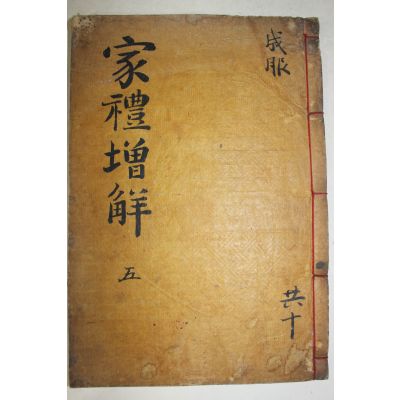 成服
家禮增解
五
共十